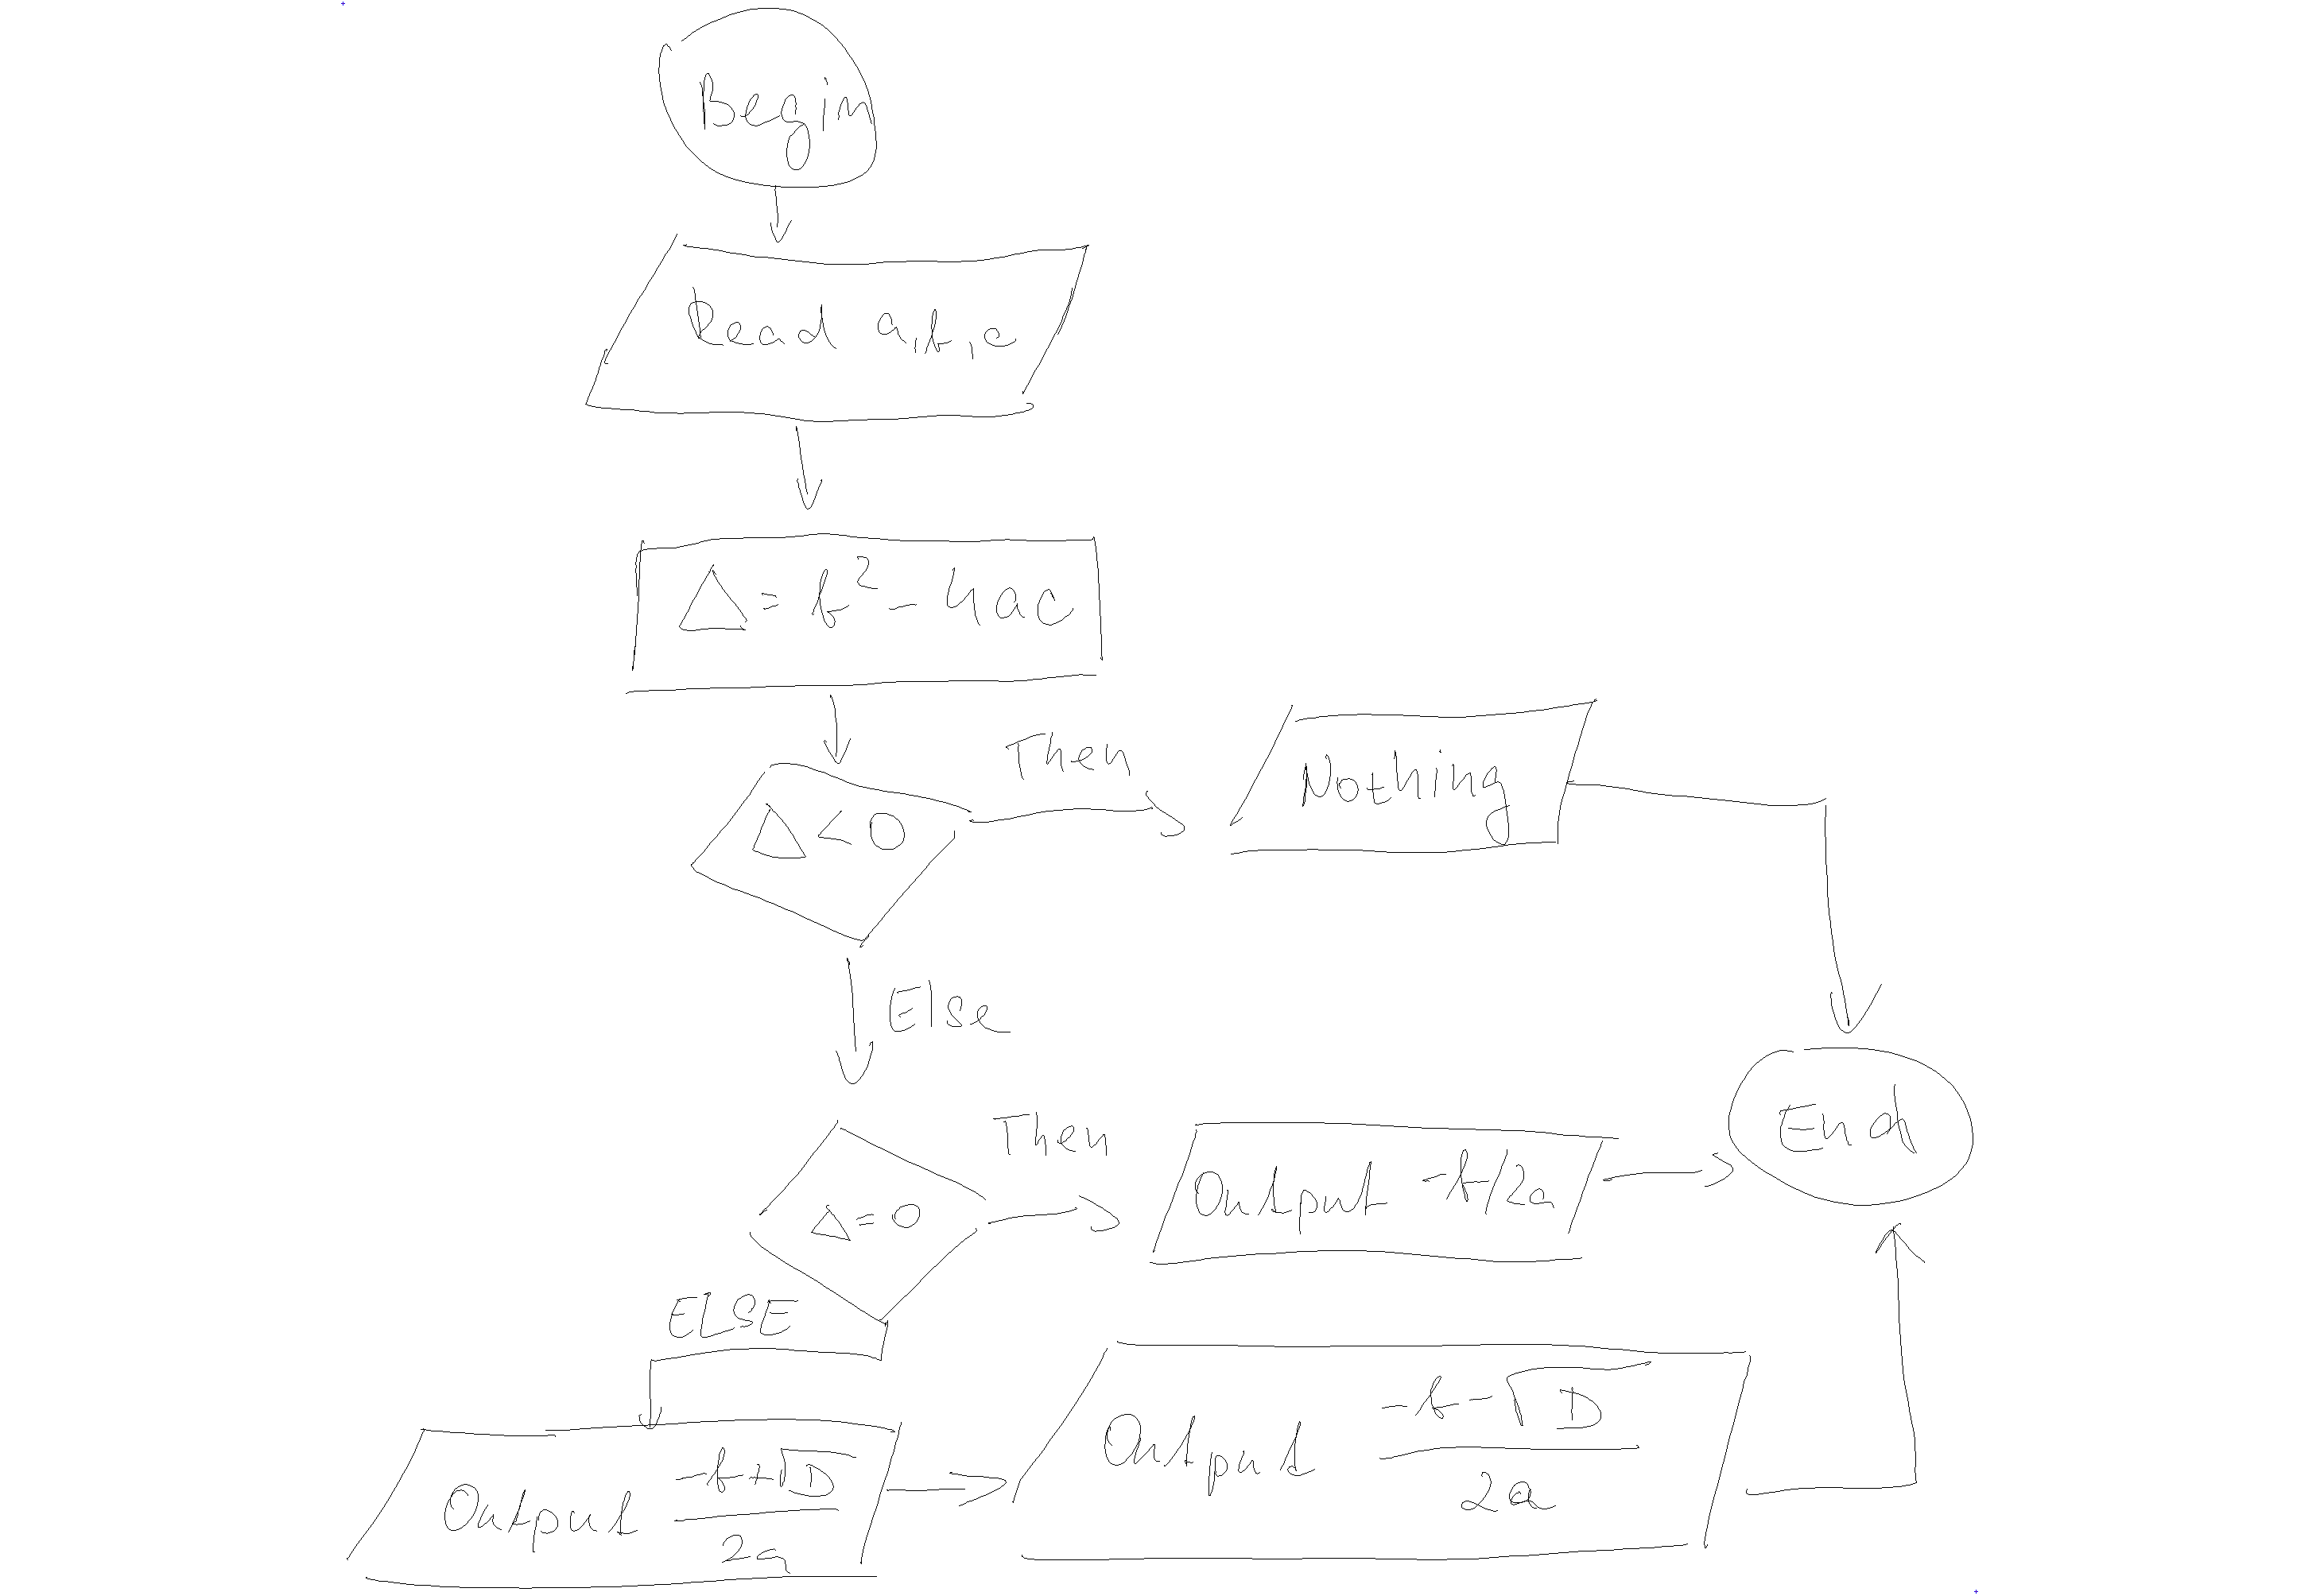 Begin
Read a, b, c
Δ = b² - 4ac
Then
Nothing
Δ < 0
Else
Then
End
Output -b/2a
Δ = 0
ELSE
Output (-b+√D)/2a
Output (-b-√D)/2a